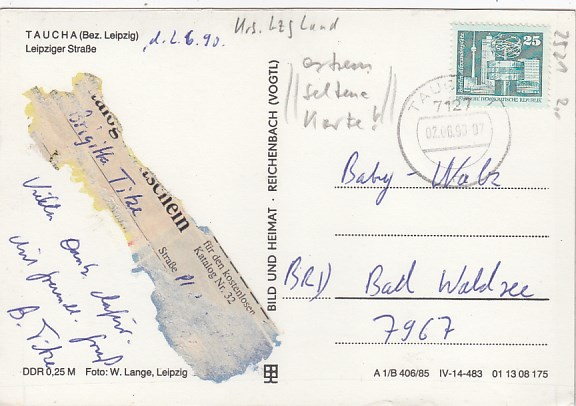 TAUCHA (Bez. Leipzig)
Leipziger Straße
, d. 2.6.90.
Krs. LzgLand
extrem
seltene
Karte!
25
DEUTSCHE DEMOKRATISCHE REPUBLIK
7127
02.06.90-07
2521
Katalog
Gutschein
für den kostenlosen
Katalog Nr. 32
Straße Pl
Brigitta Titze
Vielen Dank dafür.
Mit freundl. Gruß
B. Titze
BILD UND HEIMAT · REICHENBACH (VOGTL)
Baby - Walz
BRD Bad Waldsee
7967
DDR 0,25 M Foto: W. Lange, Leipzig
A 1/B 406/85 IV-14-483 01 13 08 175